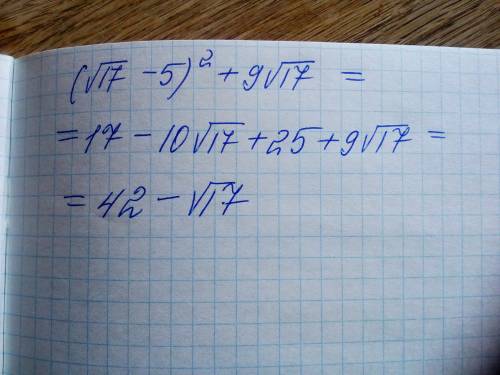 (√17 - 5)² + 9√17 =
= 17 - 10√17 + 25 + 9√17 =
= 42 - √17